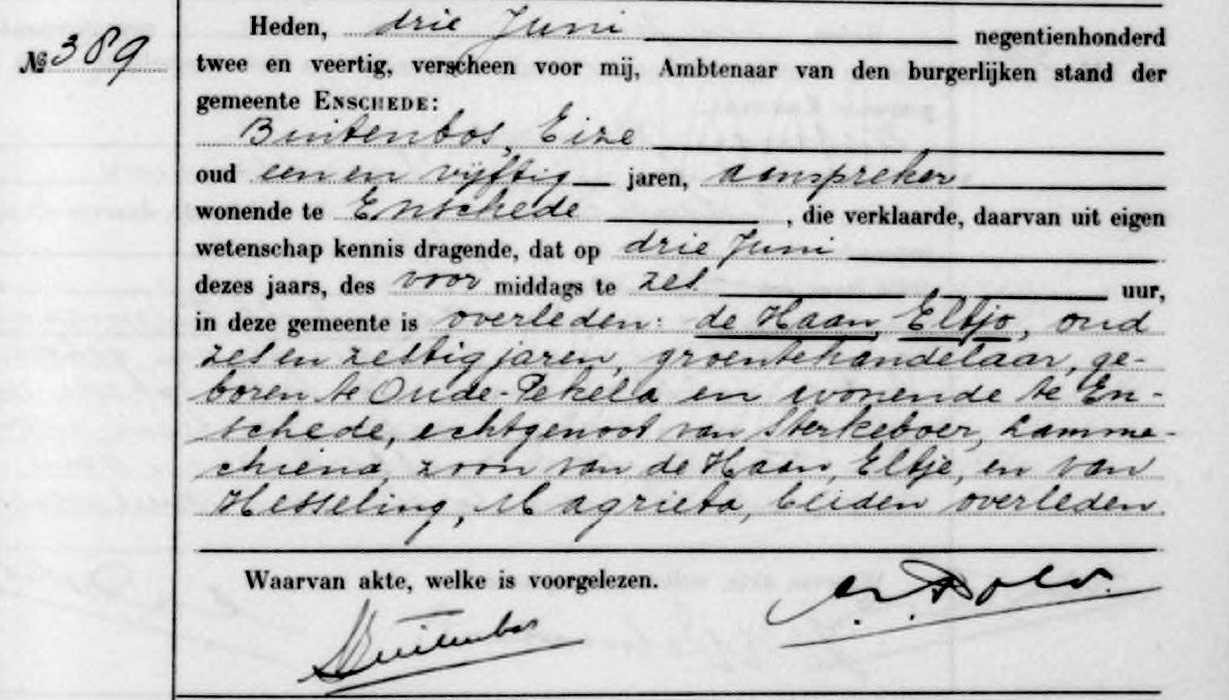 Heden, drie Juni negentienhonderd
№ 389
twee en veertig, verscheen voor mij, Ambtenaar van den burgerlijken stand der
gemeente ENSCHEDE:
Buitenbos, Eize
oud een en vijftig jaren, aanspreker,
wonende te Enschede, die verklaarde, daarvan uit eigen
wetenschap kennis dragende, dat op drie Juni
dezes jaars, des voor middags te zes uur,
in deze gemeente is overleden: de Haan, Eltjo, oud
zes en zestig jaren, groentehandelaar, ge-
boren te Oude-Pekela en wonende te En-
schede, echtgenoot van Sterkeboer, Lamme-
chiena, zoon van de Haan, Eltje, en van
Hesseling, Magrieta, beiden overleden.
Waarvan akte, welke is voorgelezen.
Buitenbos